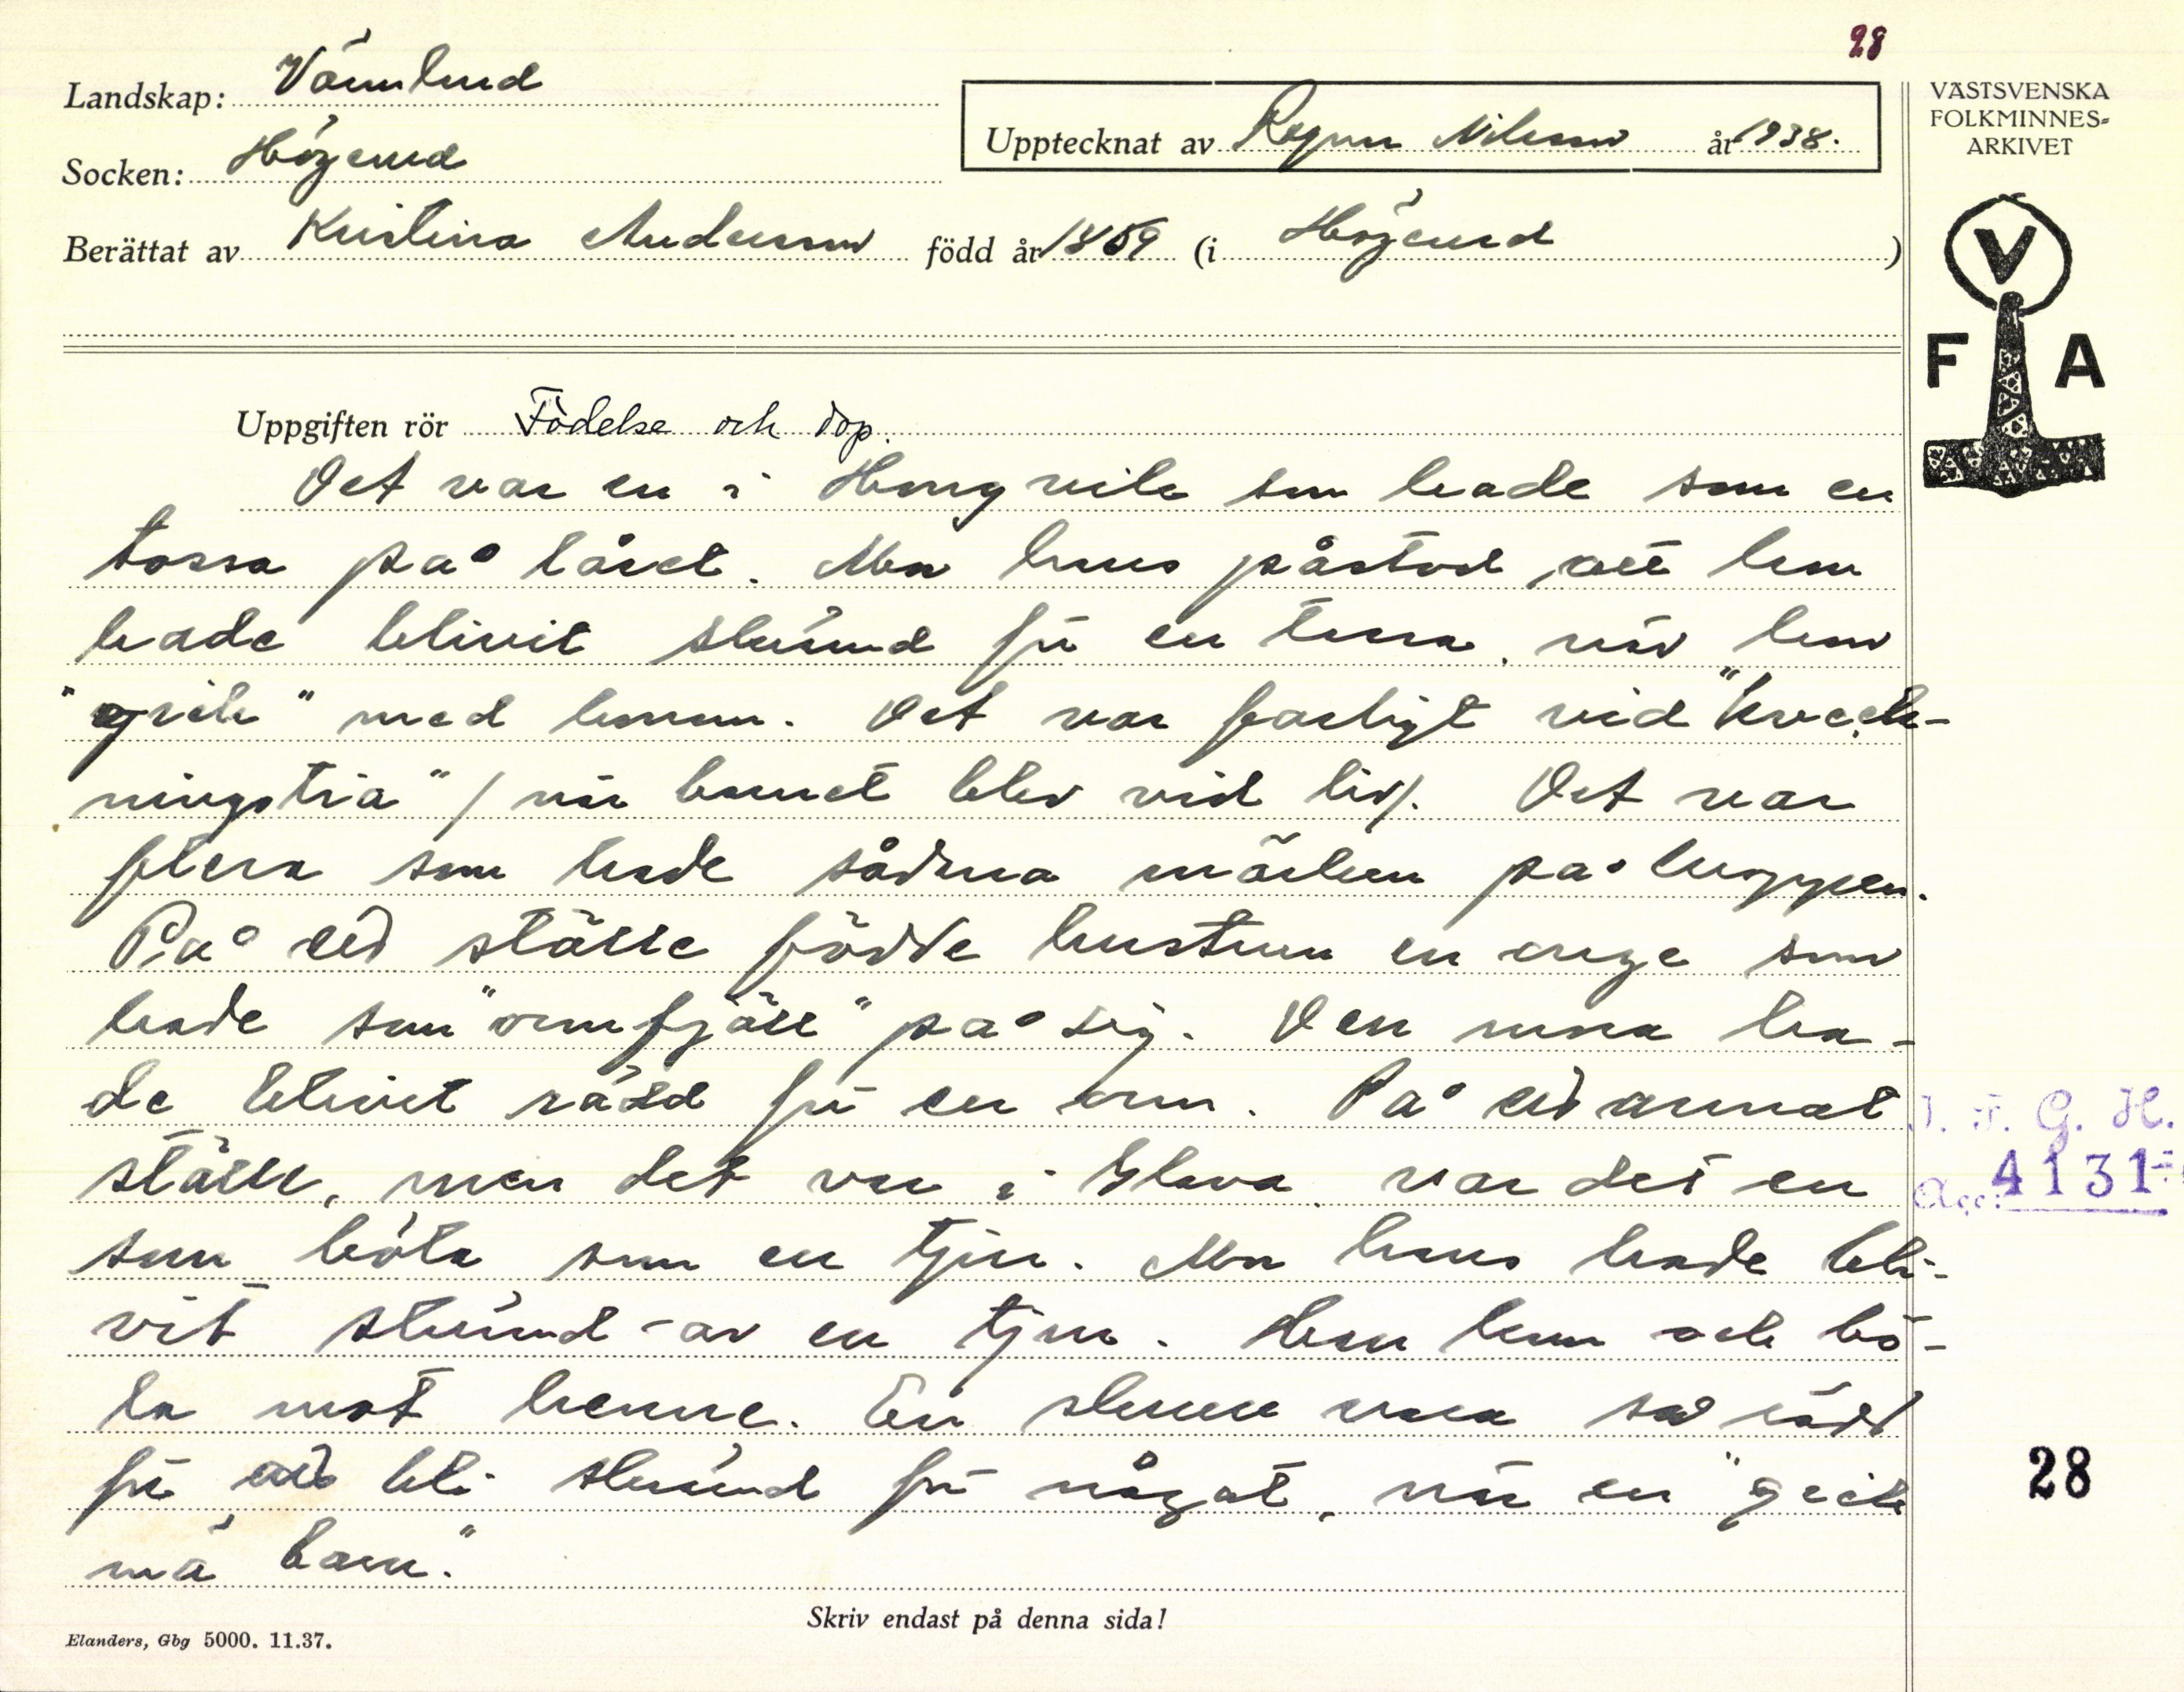 28
Landskap: Värmland
Socken: Högerud
Upptecknat av Ragnar Nilsson år 1938.
Berättat av Kristina Andersson född år 1859 (i Högerud)
VÄSTSVENSKA
FOLKMINNES-
ARKIVET
V
F A
Uppgiften rör Födelse och dop.
Det var en i Högerud som hade som en
tossa på låret. Mor hans påstod att hon
hade blivit skrämd för en tossa, när hon
"geck" med honom. Det var farligt vid "kveck-
ningstia" / när barnet blev vid liv/. Det var
flera som hade sådana märken på kroppen.
På ett ställe födde hustrun en unge som
hade som "ormfjäll" på sig. Den mora ha-
de blivit rädd för en orm. På ett annat
ställe, men det var i Glava var det en
som böla som en tjur. Mor hans hade bli-
vit skrämd av en tjur. Han kom och bö-
la mot henne. En skulle vara så rädd
för att bli skrämd för något, när en "geck
mä barn."
I. F. G. H.
Acc: 4131
28
Skriv endast på denna sida!
Elanders, Gbg 5000. 11.37.